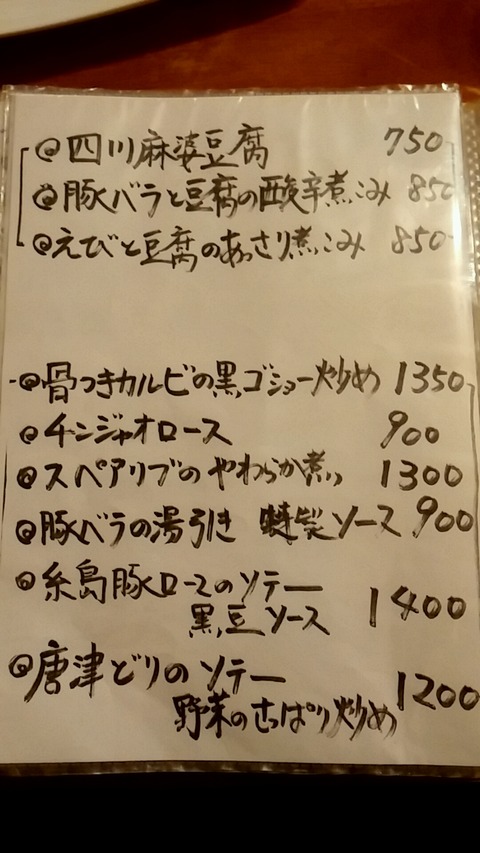 @四川麻婆豆腐 750
@豚バラと豆腐の酸辛煮こみ 850
@えびと豆腐のあっさり煮こみ 850
@骨つきカルビの黒ゴショー炒め 1350
@チンジャオロース 900
@スペアリブのやわらか煮 1300
@豚バラの湯引き 特製ソース 900
@糸島豚ロースのソテー
黒豆ソース 1400
@唐津どりのソテー
野菜のさっぱり炒め 1200